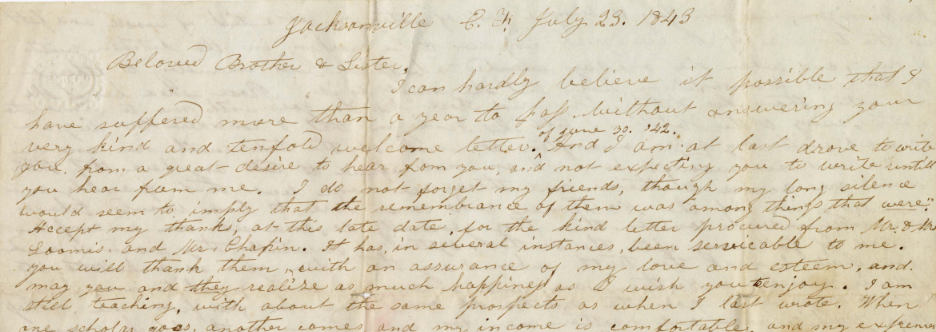 Jacksonville E. F. July 23. 1843
Beloved Brother & Sister.
I can hardly believe it possible that I
have suffered more than a year to pass without answering your
very kind and tenfold welcome letter. of June 30. '42. And I am at last drove to write
you, from a great desire to hear from you, and not expecting you to write untill
you hear from me. I do not forget my friends, though my long silence
would seem to imply that the remembrance of them was among things that were."
Accept my thanks, at this late date, for the kind letter procured from Mr. & Mrs
Loomis and Mr Chapin. It has, in several instances, been servicable to me.
you will thank them, with an assurance of my love and esteem, and.
may you and they realize as much happiness as I wish you to enjoy. I am
still teaching, with about the same prospects as when I last wrote. When
one scholar goes, another comes and my income is comfortable, and my expenses